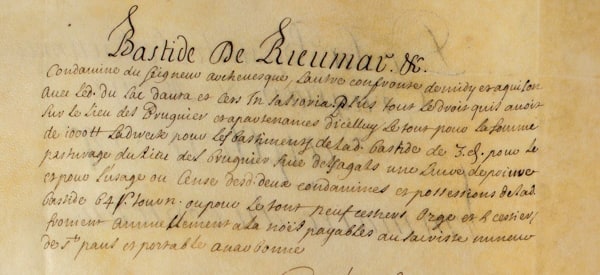 Bastide De Rieumar. &c.
Condamine du seigneur archevesque, Lautre confronte de midy et aquilon
avec led. du Lac dauta et Cers In salsaria. Plus tout le droit quil avoit
sur le Lieu des Bruguier et apartenances dicelluy Le tout pour la somme
de 1000tt Ladverte pour les bastiments de Lad. bastide de 3.d. pour le
pasturage du Lieu des Bruguier une Livre de poivre
et pour Lusage ou Cense desd. deux condamines et possessions de Lad.
bastide 64 s. tourn. ou pour le tout neuf cestiers Orge et 8 cestiers
froment annuellement a la noël payables au sacriste mineur
de St. paul et portable a narbonne